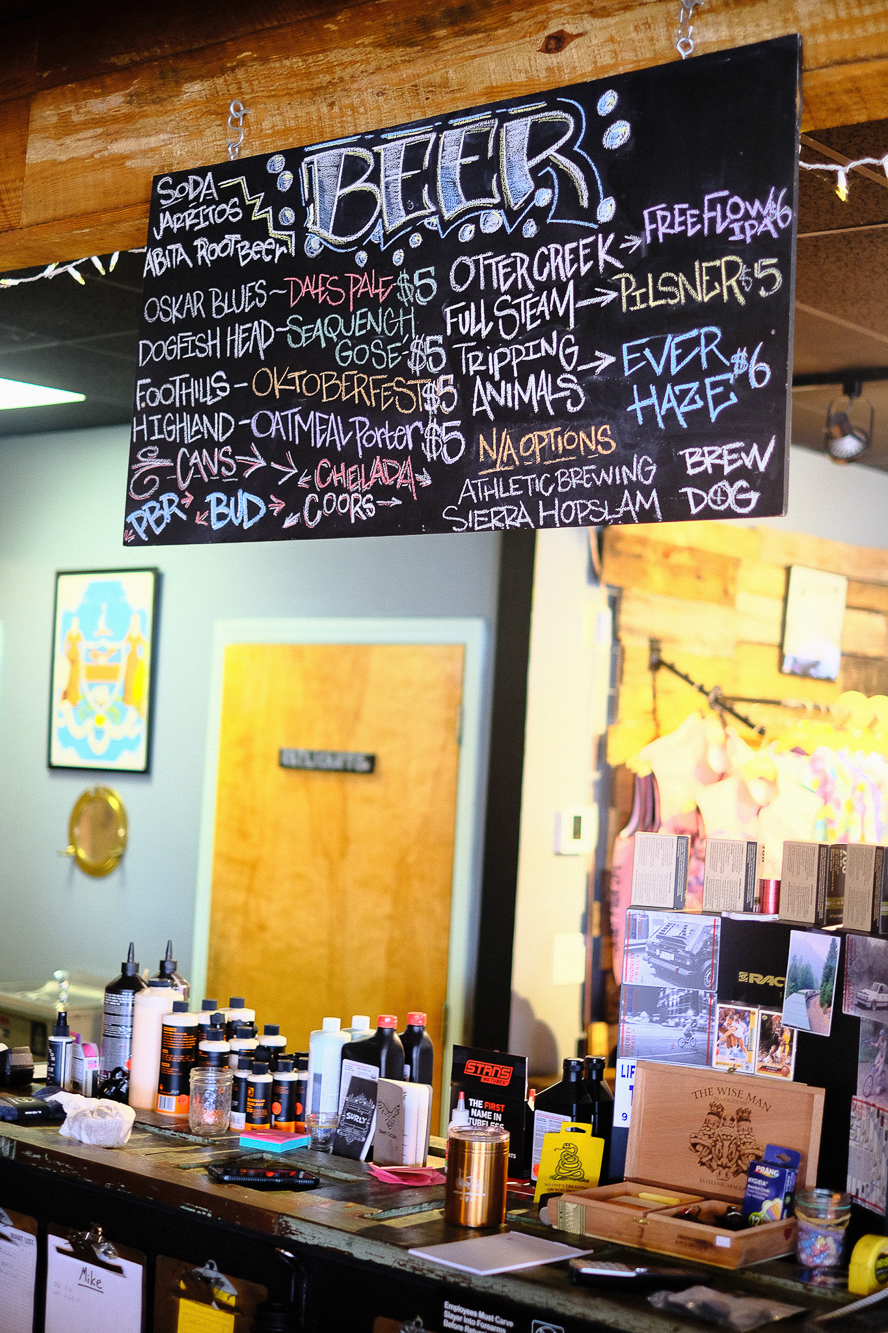 BEER
SODA
JARRITOS
ABITA ROOT BEER
OSKAR BLUES - DALES PALE $5
DOGFISH HEAD - SEAQUENCH
GOSE - $5
FOOTHILLS - OKTOBERFEST $5
HIGHLAND - OATMEAL PORTER $5
CANS → → CHELADA →
PBR → BUD → COORS →
OTTER CREEK → FREE FLOW $6
IPA
FULL STEAM → PILSNER $5
TRIPPING
ANIMALS → EVER
HAZE $6
N/A OPTIONS
ATHLETIC BREWING
SIERRA HOPSLAM
BREW
DOG
STANS
NOTUBES
THE FIRST
NAME IN
TUBELESS
SURLY
RAC
THE WISE MAN
PRANG
HYGIEIA
WANT LIST
Mike
Employees Must Carve
Slayer Into Forearms
Before Returning